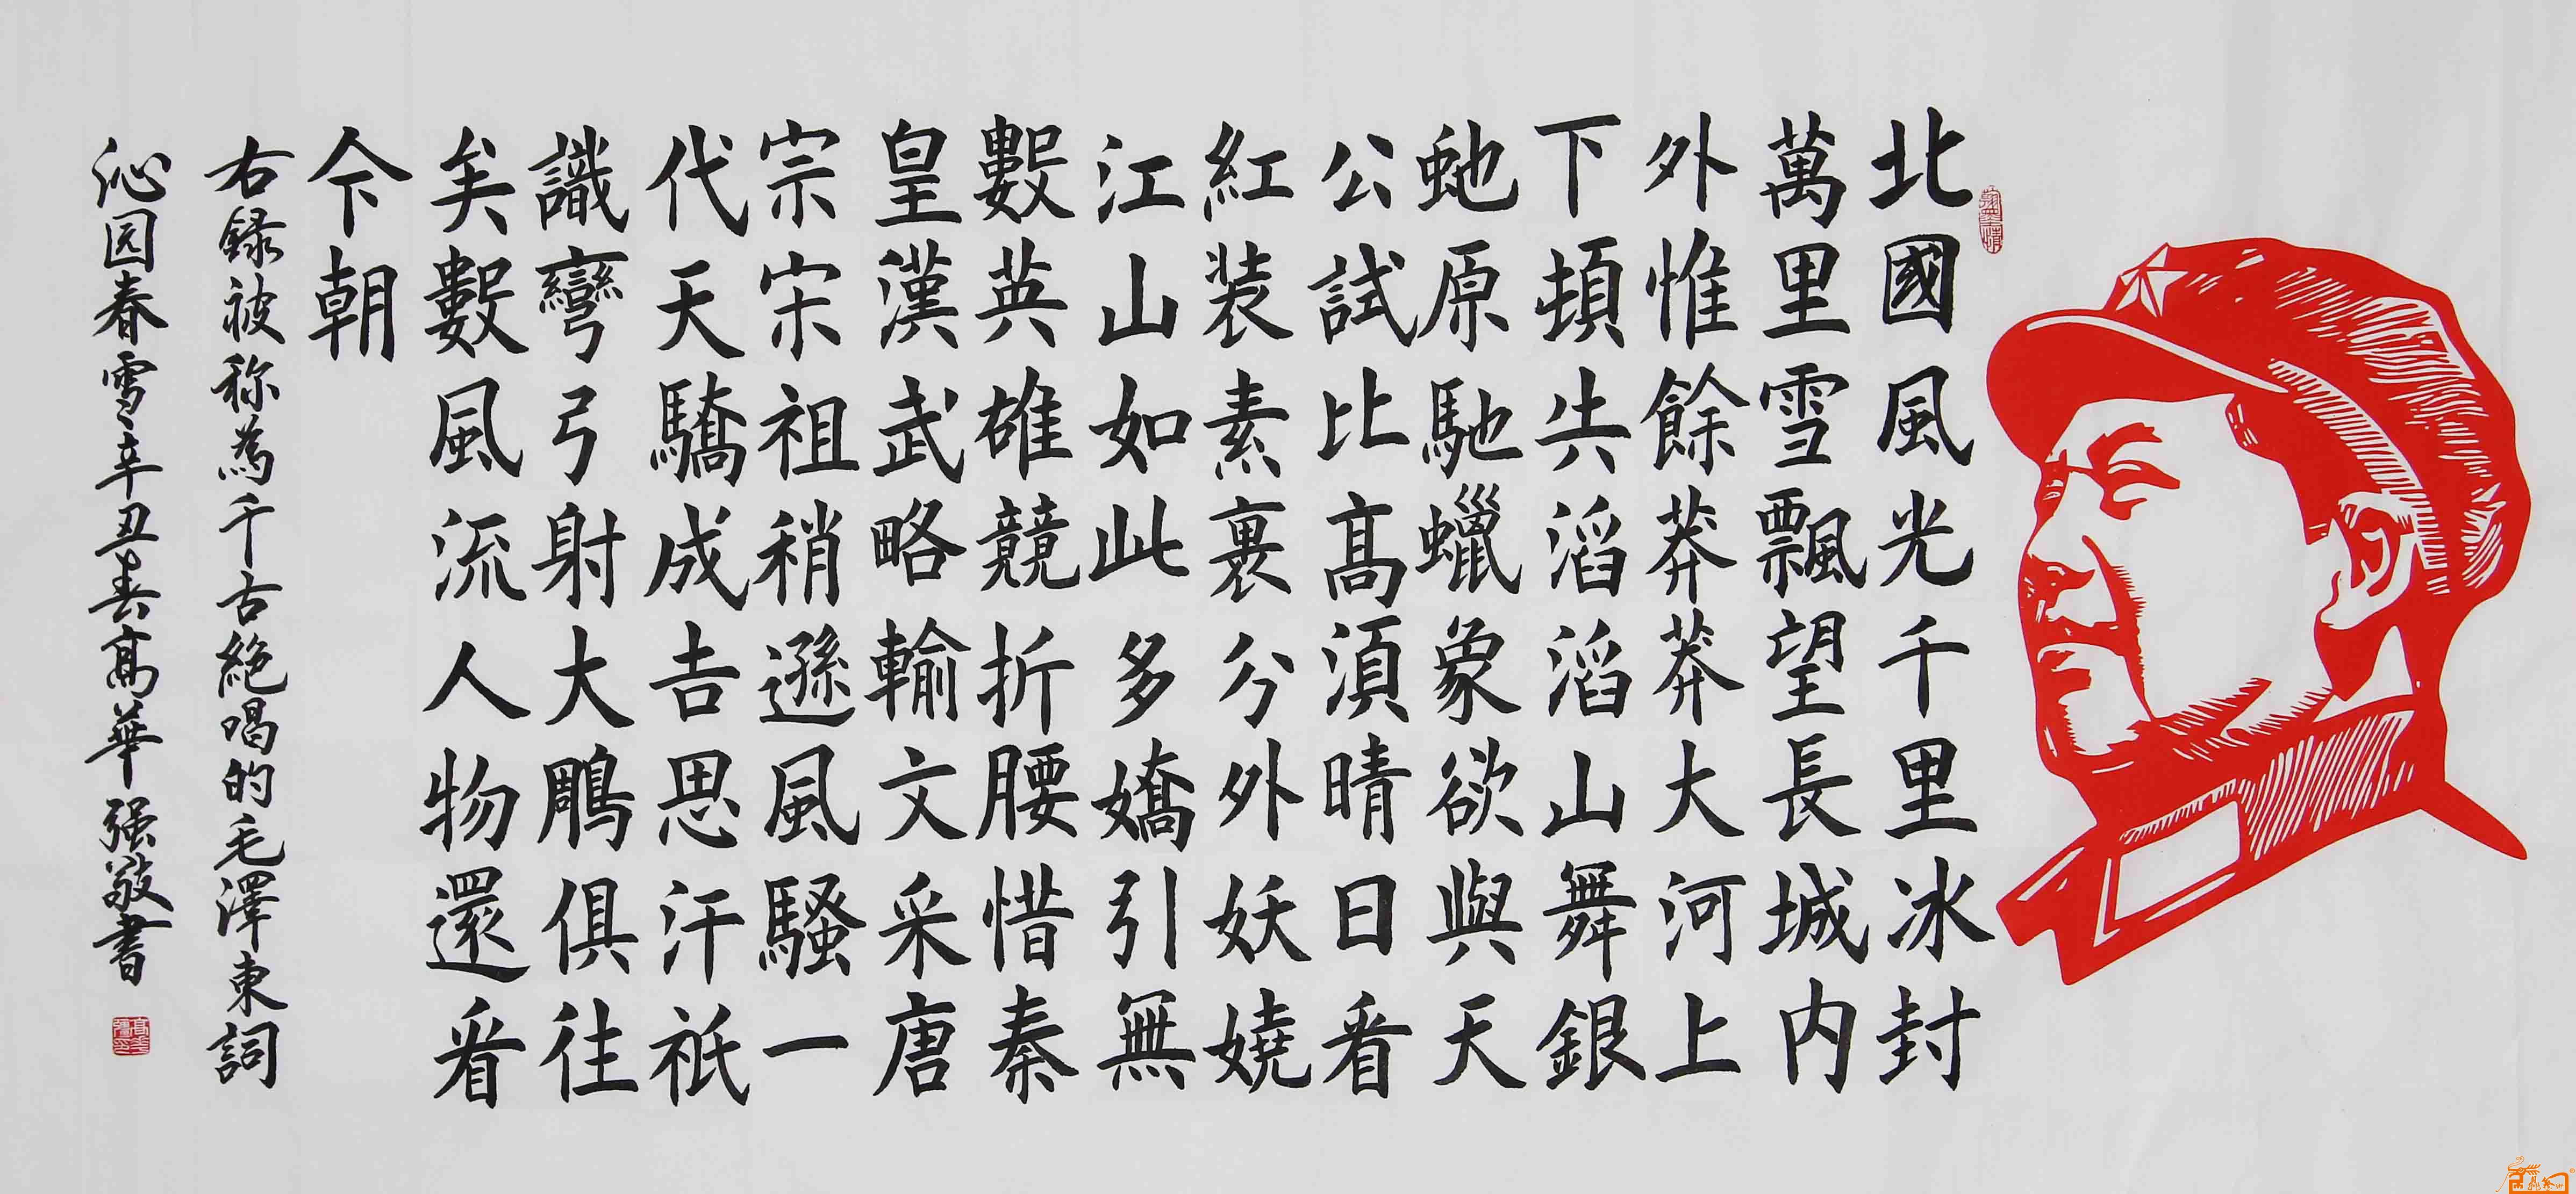 北國風光千里冰封
萬里雪飄望長城内
外惟餘莽莽大河上
下頓失滔滔山舞銀
虵原馳蠟象欲與天
公試比髙湏晴日看
紅装素裹分外妖嬈
江山如此多嬌引無
數英雄競折腰惜秦
皇漢武略輸文采唐
宗宋祖稍遜風騷一
代天驕成吉思汗祇
識彎弓射大鵰俱往
矣數風流人物還看
今朝
右録被称為千古絶唱的毛澤東詞
沁园春雪辛丑春髙華强敬書